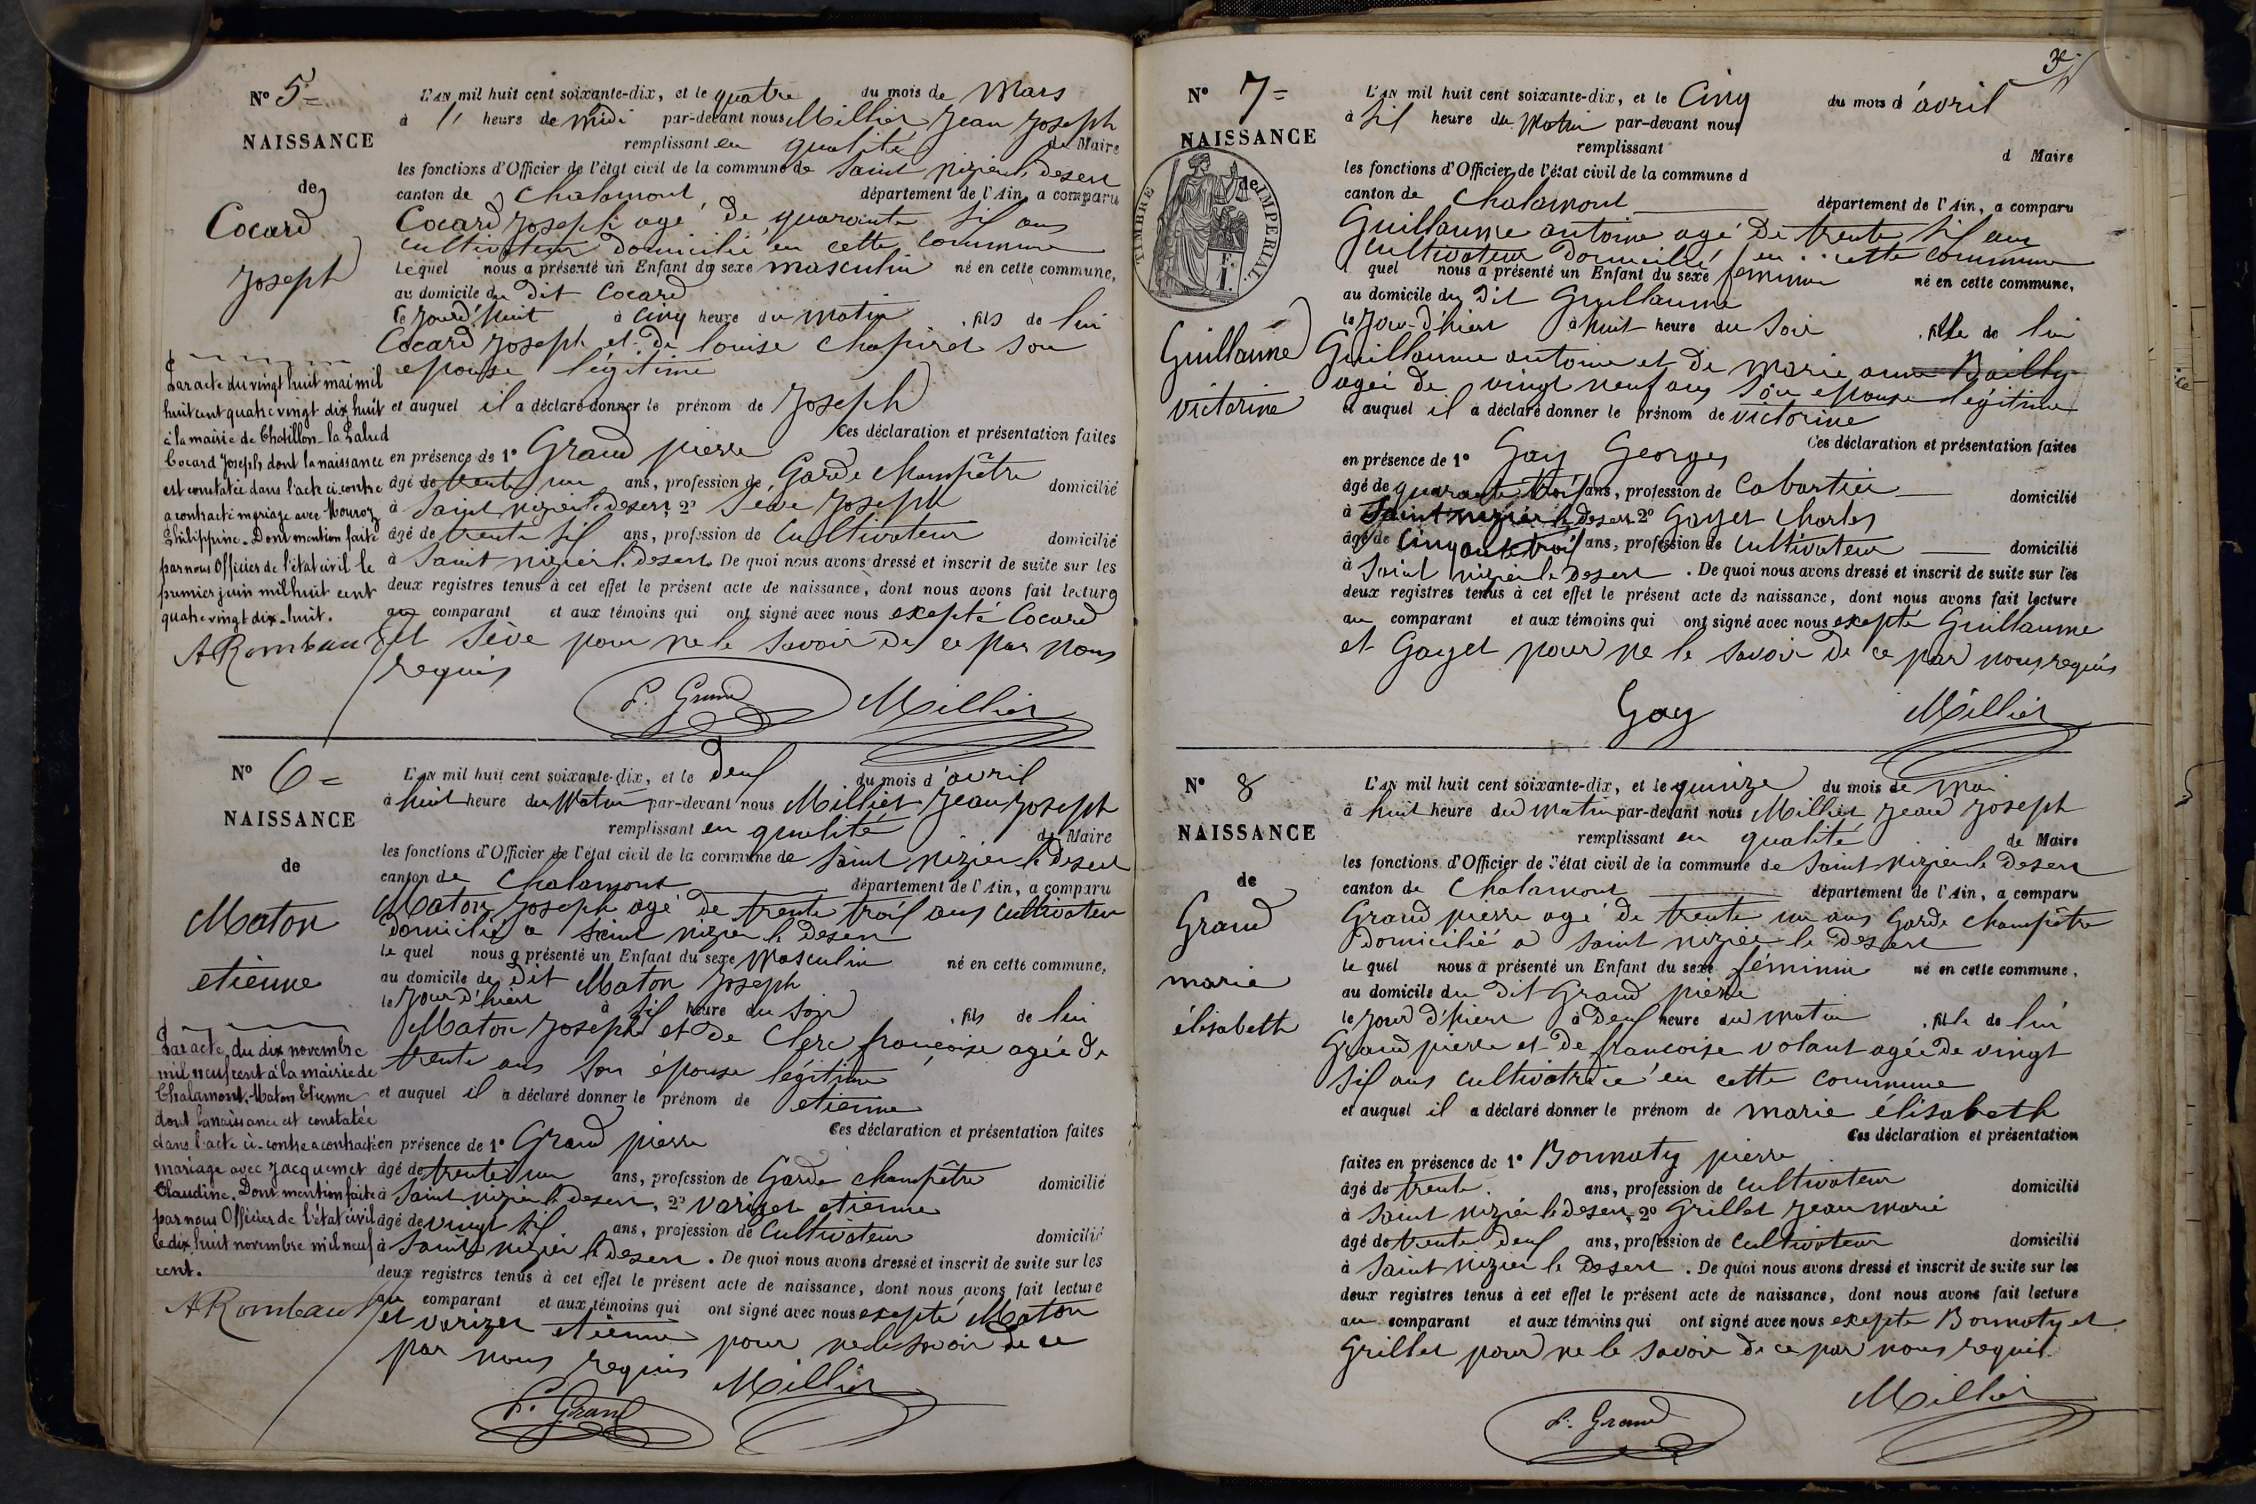 N° 5=
NAISSANCE
de
Cocard
Joseph
L'AN mil huit cent soixante-dix, et le quatre du mois de Mars
à heure de Midi par-devant nous Millier Jean Joseph
remplissant en qualité de Maire
les fonctions d'Officier de l'état civil de la commune de Saint nizier le desert
canton de Chalamont département de l'Ain, a comparu
Cocard Joseph agé de quarante sil ans
cultivateur domicilié en cette commune
Lequel nous a présenté un Enfant du sexe masculin né en cette commune,
au domicile du dit Cocard
le Jourd'huit à cinq heure du matin , fils de lui
Cocard Joseph et de louise Chapird son
epouse légitime
et auquel il a déclaré donner le prénom de Joseph
Ces déclaration et présentation faites
en présence de 1° Grand pierre
âgé de trente un ans, profession de Garde champêtre domicilié
à Saint nizier le desert, 2° Sève Joseph
âgé de trente sil ans, profession de Cultivateur domicilié
à Saint nizier le desert. De quoi nous avons dressé et inscrit de suite sur les
deux registres tenus à cet effet le présent acte de naissance, dont nous avons fait lecture
au comparant et aux témoins qui ont signé avec nous exepté Cocard
et Sève pour ne le savoir de ce par nous
requis
P. Grand Millier
Par acte du vingt huit mai mil
huit cent quatre vingt dix huit
à la mairie de Chatillon-la Palud
Cocard Joseph dont la naissance
est constatée dans l'acte ci-contre
a contracté mariage avec Mouroz
Philippine. Dont mention faite
par nous Officier de l'état civil le
premier juin mil huit cent
quatre vingt dix-huit.
A Rombau
N° 6=
NAISSANCE
de
Maton
etienne
L'AN mil huit cent soixante-dix, et le deul du mois d'avril
à huit heure du Matin par-devant nous Millier Jean Joseph
remplissant en qualité de Maire
les fonctions d'Officier de l'état civil de la commune de Saint nizier le desert
canton de Chalamont département de l'Ain, a comparu
Maton Joseph agé de trente troil ans cultivateur
domicilié a saint nizier le desert
le quel nous a présenté un Enfant du sexe Masculin né en cette commune,
au domicile du dit Maton Joseph
le Jour d'hier à sil heure du Soir , fils de lui
Maton Joseph et de Clerc françoise agée de
trente ans son épouse légitime
et auquel il a déclaré donner le prénom de etienne
Ces déclaration et présentation faites
en présence de 1° Grand pierre
âgé de trente un ans, profession de Garde champêtre domicilié
à Saint nizier le desert, 2° varizet etienne
âgé de vingt sil ans, profession de Cultivateur domicilié
à Saint nizier le desert. De quoi nous avons dressé et inscrit de suite sur les
deux registres tenus à cet effet le présent acte de naissance, dont nous avons fait lecture
au comparant et aux témoins qui ont signé avec nous exepté Maton
et varizet etienne pour ne le savoir de ce
par nous requis
P. Grand Millier
Par acte du dix novembre
mil neuf cent à la mairie de
Chalamont, Maton Etienne
dont la naissance est constatée
dans l'acte ci-contre a contracté
mariage avec Jacquemet
Claudine. Dont mention faite
par nous Officier de l'état civil
le dix huit novembre mil neuf
cent.
A Rombau
N° 7=
NAISSANCE
de
TIMBRE IMPERIAL.
Guillaume
victorine
L'AN mil huit cent soixante-dix, et le Cinq du mois d'avril
à sil heure du Matin par-devant nous
remplissant d Maire
les fonctions d'Officier de l'état civil de la commune d
canton de Chalamont département de l'Ain, a comparu
Guillaume antoine agé de trente sil ans
cultivateur domicilié en cette commune
l quel nous a présenté un Enfant du sexe feminin né en cette commune,
au domicile du dit Guillaume
le Jour d'hier à huit heure du Soir , fille de lui
Guillaume antoine et de marie anne Bailly
agée de vingt neuf ans son epouse légitime
et auquel il a déclaré donner le prénom de victorine
Ces déclaration et présentation faites
en présence de 1° Gay Georges
âgé de quarante troil ans, profession de Cabartier domicilié
à Saint nizier le desert 2° Gayet Charles
âgé de Cinquante troil ans, profession de Cultivateur domicilié
à Saint nizier le desert. De quoi nous avons dressé et inscrit de suite sur les
deux registres tenus à cet effet le présent acte de naissance, dont nous avons fait lecture
au comparant et aux témoins qui ont signé avec nous exepté Guillaume
et Gayet pour ne le savoir de ce par nous requis
Gay Millier
N° 8
NAISSANCE
de
Grand
marie
élisabeth
L'AN mil huit cent soixante-dix, et le quinze du mois de Mai
à huit heure du matin par-devant nous Millier Jean Joseph
remplissant en qualité de Maire
les fonctions d'Officier de l'état civil de la commune de Saint nizier le desert
canton de Chalamont département de l'Ain, a comparu
Grand pierre agé de trente un ans Garde champêtre
domicilié a saint nizier le desert
le quel nous a présenté un Enfant du sexe féminin né en cette commune,
au domicile du dit Grand pierre
le Jour d'hier à deul heure du matin , fille de lui
Grand pierre et de francoise volant agée de vingt
sil ans cultivatrice en cette commune
et auquel il a déclaré donner le prénom de marie élisabeth
Ces déclaration et présentation
faites en présence de 1° Bonnaty pierre
âgé de trente ans, profession de cultivateur domicilié
à Saint nizier le desert, 2° Grillet Jean marie
âgé de trente deul ans, profession de cultivateur domicilié
à Saint nizier le desert. De quoi nous avons dressé et inscrit de suite sur les
deux registres tenus à cet effet le présent acte de naissance, dont nous avons fait lecture
au comparant et aux témoins qui ont signé avec nous exepté Bonnaty et
Grillet pour ne le savoir de ce par nous requit
P. Grand Millier